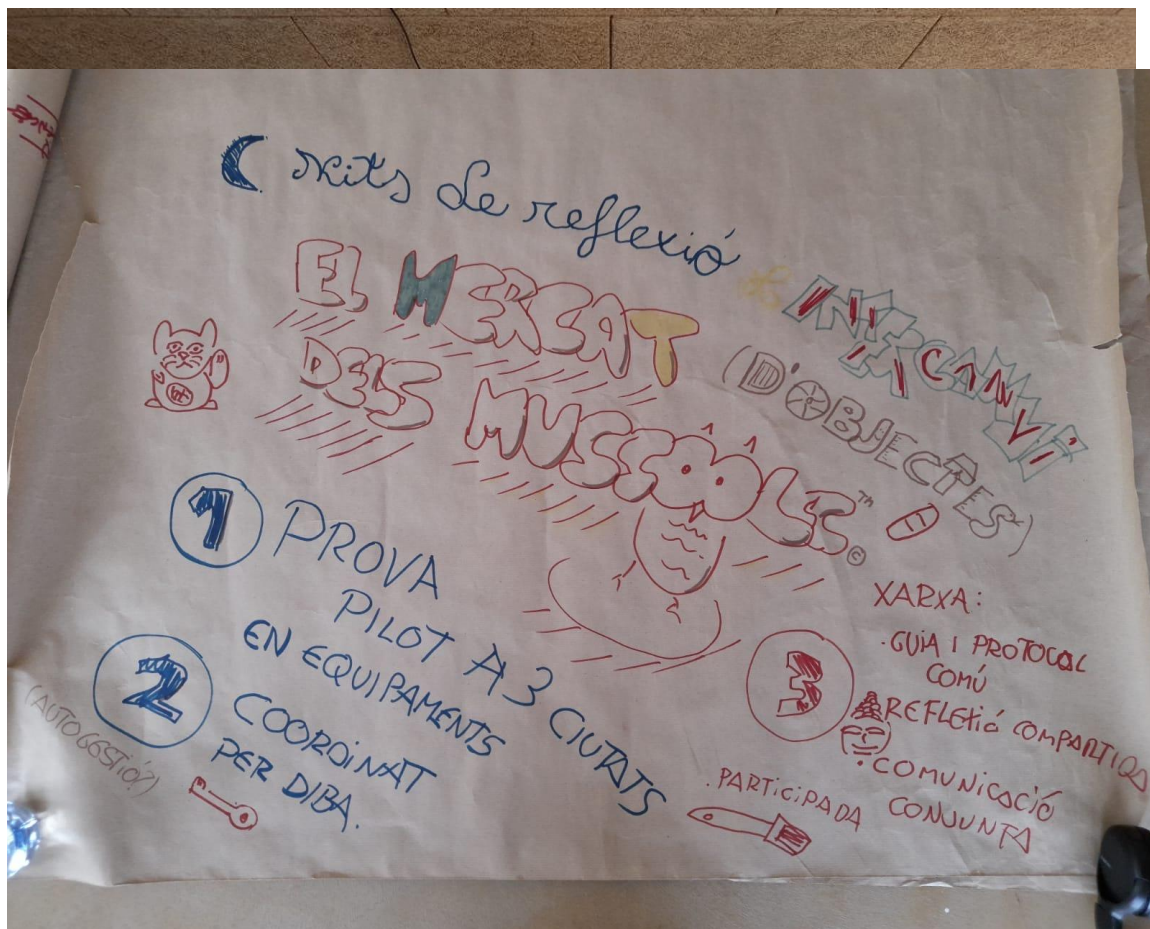 Nits de reflexió
EL MERCAT
DELS MUSCÔÔLS.™ ©
d'INTERCANVi
(D'OBJECTES)
1 PROVA
PILOT A 3 CIUTATS
EN EQUIPAMENTS
2 COORDINAT
PER DIBA.
(AUTOGESTIÓ?)
3 XARXA:
·GUiA I PROTOCOL
COMÚ
REFLEXió COMPARTIDA
·COMUNICACIÓ
CONJUNTA
·PARTICIPADA